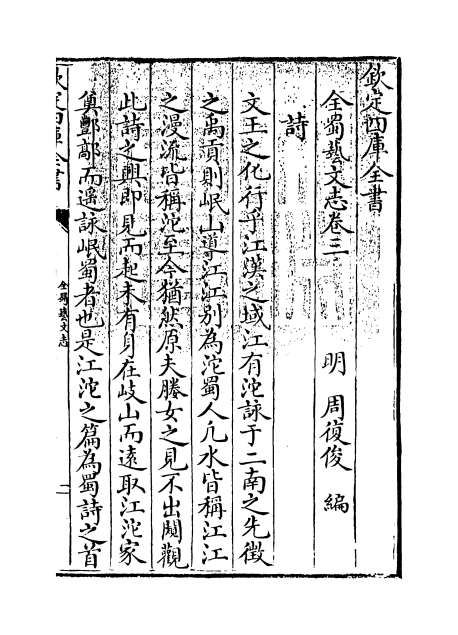 欽定四庫全書
全蜀藝文志卷三
明 周復俊 編
詩
文王之化行乎江漢之域江有沱詠于二南之先徵
之禹貢則岷山導江江別為沱蜀人凡水皆稱江江
之漫流皆稱沱至今猶然原夫媵女之見不出閨觀
此詩之興即見而起未有身在岐山而遠取江沱家
奠酆鄗而遥詠岷蜀者也是江沱之篇為蜀詩之首
欽定四庫全書
全蜀藝文志
一